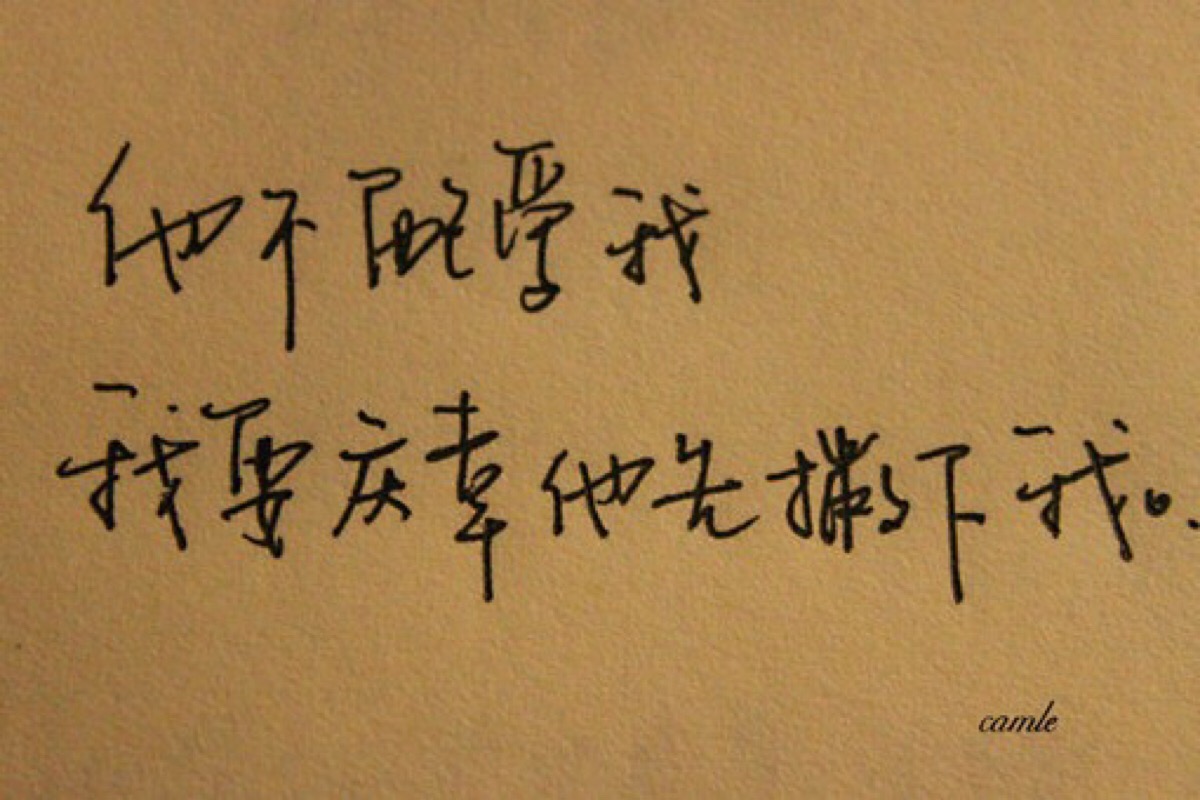 他不能享受我
我要庆幸他先撇下我。
camle